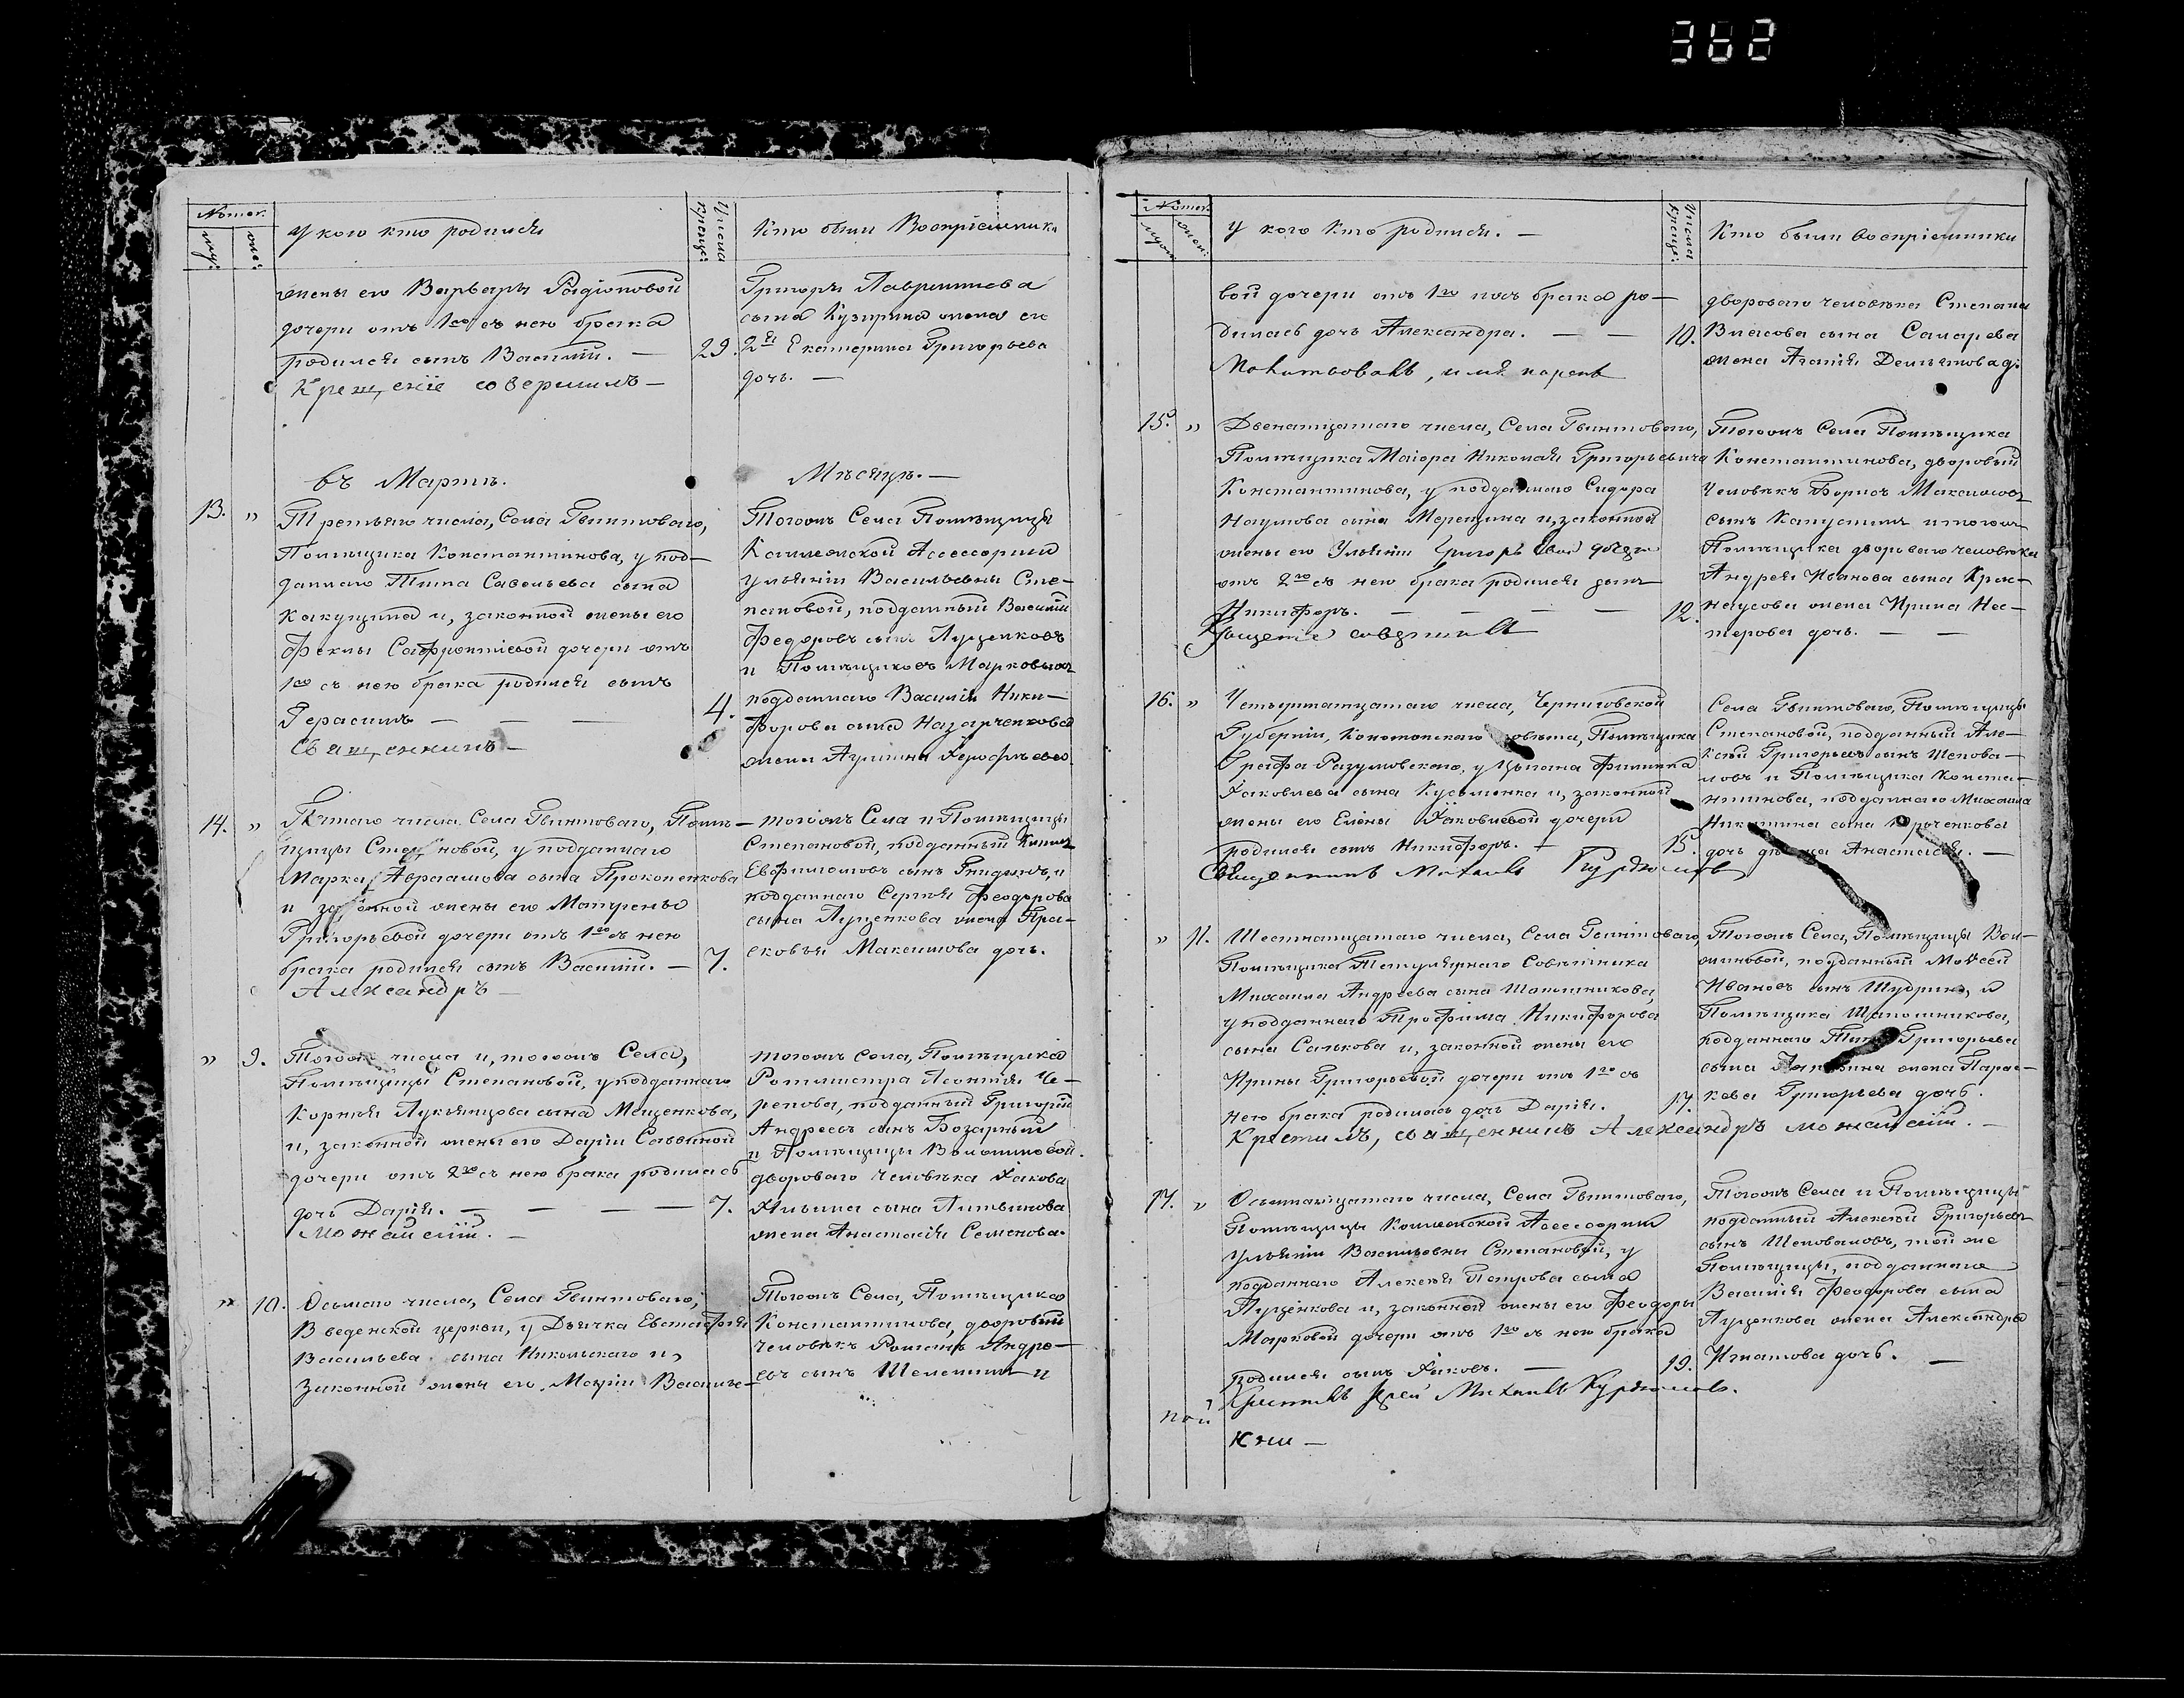 362
Номер.
муж:
жен:
У кого кто родился
Числа крещ:
Кто были Воспріемники
жены его Варвары Родіоновой
дочери отъ 1го съ нею брака
родился сынъ Василій. —
29.
Крещеніе совершилъ —
Григорія Лаврентіева
сына жена его
2я Екатерина Григорьева
дочь. —
въ Мартѣ.
Мѣсяцѣ. —
13. „
Третьяго числа, Села Гвинтоваго,
Помѣщика Константинова, у под-
даннаго Тита Савельева сына
и, законной жены его
Феклы Сафронтіевой дочери отъ
1го съ нею брака родился сынъ
Герасимъ — — —
4.
Священникъ —
Тогожъ Села Помѣщицы
Коллежской Ассесорши
Ульяніи Васильевны Сте-
пановой, подданный Василій
Федоровъ сынъ Луценковъ
и Помѣщиковъ Марковыхъ
подданнаго Василія Ники-
форова сына Назарченкова
жена
14. „
Пятаго числа Села Гвинтоваго, Помѣ-
щицы Степановой, у подданнаго
Марка Авраамова сына Прокопенкова
и законной жены его Матрены
Григорьевой дочери отъ 1го съ нею
брака родился сынъ Василій. —
7.
Александръ —
тогожъ Села и Помѣщицы
Степановой, подданный
Евфимовъ сынъ и
подданнаго Сергія Феодорова
сына Луценкова жена Пра-
сковья Максимова дочь.
„ 9.
Тогожъ числа и, тогожъ Села,
Помѣщицы Степановой, у подданнаго
Корнія Лукьянцова сына Мащенкова,
и, законной жены его Даріи Саввиной
дочери отъ 2го съ нею брака родилась
дочь Дарія. — — — —
7.
Можайскій. —
тогожъ села, Помѣщика
Ротмистра Леонтія Че-
репова, подданный Григорій
Андреевъ сынъ Бозарный
и Помѣщицы Волжиновой
двороваго человѣка Іакова
Ильина сына Литвинова
жена Анастасія Семенова.
„ 10.
Осьмаго числа, Села Гвинтоваго,
Введенской церкви, у Дьячка Евстафія
Васильева сына Никольскаго и,
законной жены его, Маріи Василье-
Тогожъ Села, Помѣщика
Константинова, дворовый
человѣкъ Романъ Андре-
евъ сынъ и
Номер.
муж:
жен:
У кого кто родился. —
Числа крещ:
Кто были воспріемники
вой дочери отъ 1го по съ брака ро-
дилась дочь Александра. — —
10.
Молитвовалъ, имя нарекъ
двороваго человѣка Степана
Власова сына Самарсва
жена Агафія Дементова д:
15. „
Двенатцатаго числа, Села Гвинтоваго,
Помѣщика Маіора Николая Григорьевича
Константинова, у подданнаго Сидора
Наумова сына Мерещина и, законной
жены его Ульяніи Григорьевой дочери
отъ 2го съ нею брака родился сынъ
Никифоръ. — — — —
12.
Крещеніе совершилъ
Тогожъ Села Помѣщика
Константинова, дворовый
человѣкъ Борисъ Максимовъ
сынъ Капустинъ и тогожъ
Помѣщика двороваго человѣка
Андрея Иванова сына Крас-
ноусова жена Ирина Нес-
терова дочь. — —
16. „
Четырнатцатаго числа, Черниговской
Губерніи, Конотопскаго повѣта, Помѣщика
Графа Разумовскаго, у Филипа
Іаковлева сына Кузьменка и, законной
жены его Елены Іаковлевой дочери
родился сынъ Никифоръ. —
15.
Священникъ Михаилъ Курдюмовъ
Села Гвинтоваго, Помѣщицы
Степановой, подданный Але-
ксій Григорьевъ сынъ Шепова-
ловъ и Помѣщика Конста-
нтинова, подданнаго Михаила
Никитина сына Юрченкова
дочь дѣвица Анастасія. —
„ 11.
Шестнатцатаго числа, Села Гвинтоваго,
Помѣщика Титулярнаго Совѣтника
Михаила Андреева сына Шапошникова,
у подданнаго Трофима Никифорова
сына Салькова и, законной жены его
Ирины Григорьевой дочери отъ 1го съ
нею брака родилась дочь Дарія.
17.
Крестилъ, священникъ Александръ Можайскій. —
Тогожъ Села, Помѣщицы Вол-
жиновой, подданный Моѵсей
Ивановъ сынъ Шудринъ, и
Помѣщика Шапошникова,
подданнаго Григорьева
сына жена Парас-
кева Григорьева дочь.
17. „
Осьмнатцатаго числа, Села Гвинтоваго,
Помѣщицы Коллежской Ассесорши
Ульяніи Васильевны Степановой, у
подданнаго Алексія Петрова сына
Луценкова и, законной жены его Феодоры
Марковой дочери отъ 1го съ нею брака
родился сынъ Іаковъ. —
19.
Крестилъ Іерей Михаилъ Курдюмовъ.
Тогожъ Села и Помѣщицы
подданный Алексій Григорьевъ
сынъ Шеповаловъ, той же
Помѣщицы, подданнаго
Василія Феодорова сына
Луценкова жена Александра
Игнатова дочь. —
ной